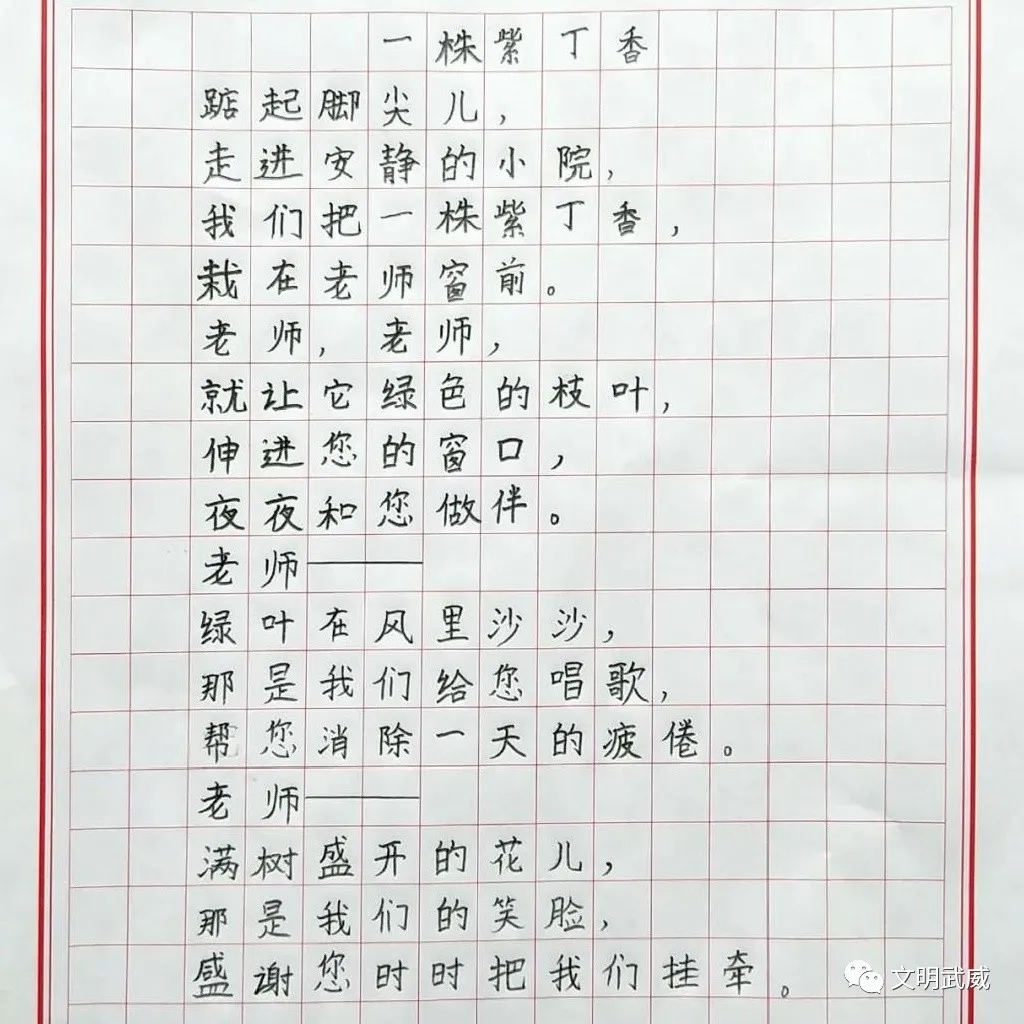 一株紫丁香
踮起脚尖儿，
走进安静的小院，
我们把一株紫丁香，
栽在老师窗前。
老师，老师，
就让它绿色的枝叶，
伸进您的窗口，
夜夜和您做伴。
老师——
绿叶在风里沙沙，
那是我们给您唱歌，
帮您消除一天的疲倦。
老师——
满树盛开的花儿，
那是我们的笑脸，
感谢您时时把我们挂牵。
文明武威